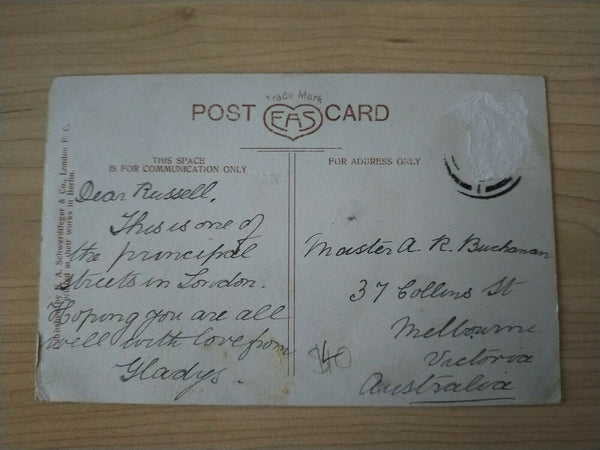 Trade Mark
POST EAS CARD
THIS SPACE
IS FOR COMMUNICATION ONLY
FOR ADDRESS ONLY
Dear Russell,
This is one of
the principal
streets in London.
Hoping you are all
well with love from
Gladys.
Master A. R. Buchanan
37 Collins St
Melbourne
Victoria
Australia
Published by E. A. Schwerdtfeger & Co., London E. C.
Printed at their works in Berlin.